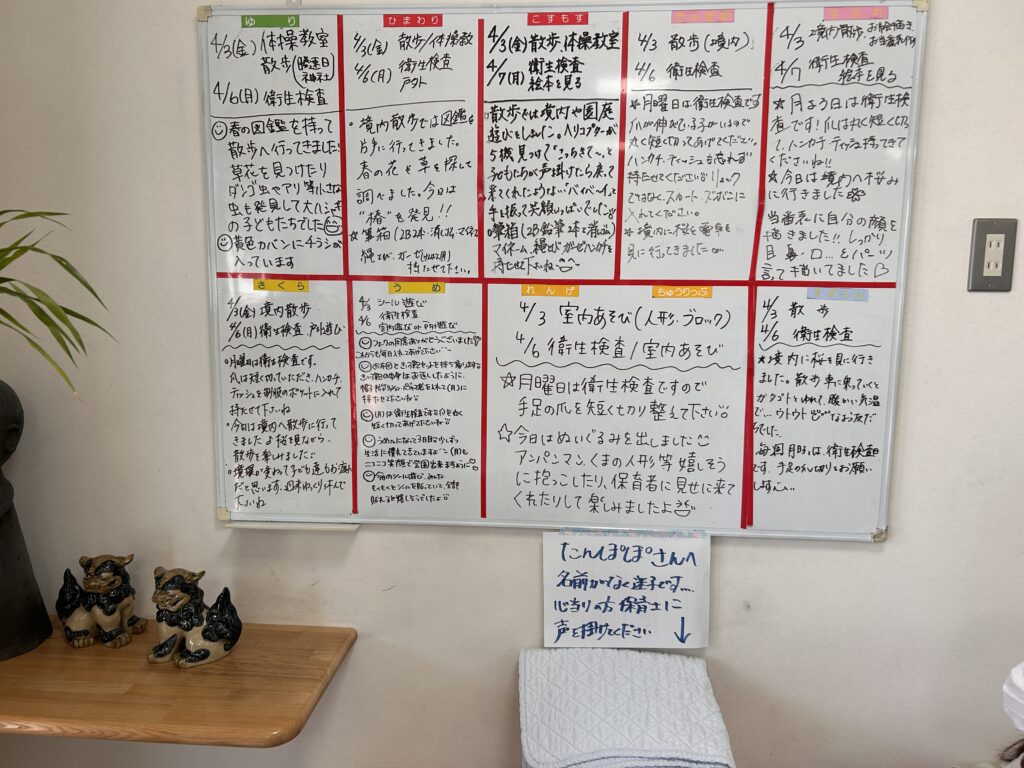 ゆり
4/3(金) 体操教室
散歩
4/6(月) 衛生検査
春の図鑑を持って
散歩へ行ってきました!
草花を見つけたり
ダンゴ虫やアリ等小さな
虫も発見して大はしゃぎ
の子どもたちでした
黄色カバンにチラシが
入っています
ひまわり
4/3(金) 散歩/体操教室
4/6(月) 衛生検査
戸外
・境内散歩では図鑑を
片手に行ってきました。
春の花や草を探して
調べました。今日は
"椿"を発見!!
☆筆箱(2B2本・消しゴム・マイネーム
縄とび、ガーゼ
持たせて下さい。
こすもす
4/3(金)散歩、体操教室
4/7(月) 衛生検査
絵本を見る
散歩では境内や園庭
遊びをしました。ヘリコプターが
5機見つけて"こっちきて〜"と
子どもたちが声掛けたら来て
来てくれたようない"バイバーイ"と
手を振って笑顔いっぱいでした
筆箱(2B鉛筆2本と消ゴム)
マイネーム、縄とび
持たせて下さいね
たんぽぽ
4/3 散歩(境内)
4/6 衛生検査
☆月曜日は衛生検査です
爪が伸びている子がいるので
丸く短く切ってあげてください。
ハンカチ、ティッシュも忘れず
持たせてくださいね リュック
ではなく、スカート、ズボンに
入れてください。
☆境内に桜や電車を
見に行ってきました
すみれ
4/3 境内散歩、お絵描き、
4/7 衛生検査
絵本を見る
☆月よう日は衛生検
査です!爪は丸く短く切っ
て、ハンカチ ティッシュ持ってきて
くださいね!!
☆今日は境内へ桜み
に行きました
当番表に自分の顔を
描きました!! しっかり
目、鼻、口…をパーツ
言って描いてました
さくら
4/3(金) 境内散歩
4/6(月) 衛生検査、戸外遊び
○月曜日は衛生検査です。
爪は短く切っていただき、ハンカチ、
ティッシュを制服のポケットに入れて
持たせて下さいね
○今日は境内へ散歩に行って
きましたよ 桜を見ながら
散歩を楽しみました!!
○環境が変わって子ども達もお疲れ
だと思います。週末ゆっくり休んで
下さいね
うめ
4/3 シール遊び
衛生検査
4/6 室内遊び or 戸外遊び
(月)は衛生検査です 爪も丸く
短く切ってあげて下さいね
うめ組になって3日目少しずつ
生活に慣れてきていますよ (月)も
ニコニコ笑顔で全員出来ますように
れんげ
ちゅうりっぷ
4/3 室内あそび(人形・ブロック)
4/6 衛生検査/室内あそび
☆月曜日は衛生検査ですので
手足の爪を短く切り整えて下さい
☆今日はぬいぐるみを出しました
アンパンマン、くまの人形等嬉しそう
に抱っこしたり、保育者に見せに来て
くれたりして楽しみましたよ
4/3 散歩
4/6 衛生検査
★境内に桜を見に行き
ました。散歩車に乗っていくと
ガタゴトとゆれて、暖かい気温
で…ウトウト なお友だち
でした。
毎週月曜は、衛生検査
です、手足の爪切りをお願い
します
たんぽぽさんへ
名前がなく迷子です…
心当りの方 保育士に
声を掛けてください ↓